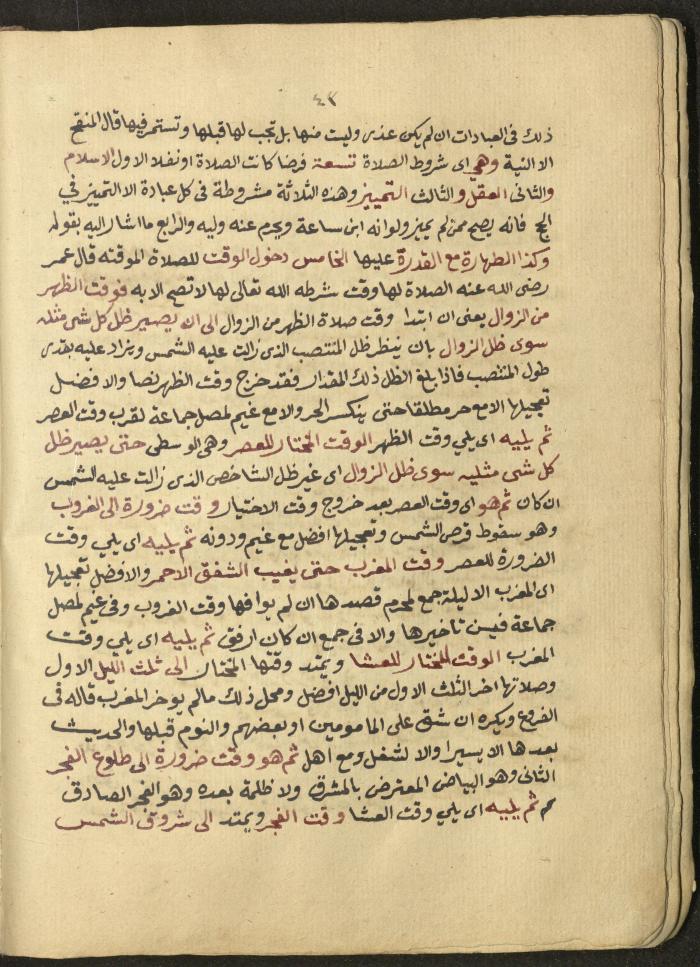 ٤٢
ذلك في العبادات ان لم يكن عذر وليت منها بل تجب لها قبلها وتستمر فيها قال المنقح
الا النية وهي اى شروط الصلاة تسعة فرضا كانت الصلاة او نفلا الاول الاسلام
والثانى العقل والثالث التمييز وهذه الثلاثة مشروطة فى كل عبادة الا التمييز في
الحج فانه يصح ممن لم يميز ولو انه ابن ساعة ويحرم عنه وليه والرابع ما اشار اليه بقوله
وكذا الطهارة مع القدرة عليها الخامس دخول الوقت للصلاة الموقته قال عمر
رضى الله عنه الصلاة لها وقت شرطه الله تعالى لها لا تصح الا به فوقت الظهر
من الزوال يعنى ان ابتدا وقت صلاة الظهر من الزوال الى ان يصير ظل كل شى مثله
سوى ظل الزوال بان ينظر ظل المنتصب الذى زالت عليه الشمس ويزاد عليه بقدى
طول المنتصب فاذا بلغ الظل ذلك المقدار فقد خرج وقت الظهر نصا والافضل
تعجيلها الا مع حر مطلقا حتى ينكسر الحر والا مع غيم لمصل جماعة لقرب وقت العصر
ثم يليه اى يلي وقت الظهر الوقت المختار للعصر وهى الوسطى حتى يصير ظل
كل شى مثليه سوى ظل الزوال اى غير ظل الشاخص الذى زالت عليه الشمس
ان كان ثم هو اى وقت العصر بعد خروج وقت الاختيار وقت ضرورة الى الغروب
وهو سقوط قرص الشمس وتعجيلها افضل مع غيم ودونه ثم يليه اى يلي وقت
الضرورة للعصر وقت المغرب حتى يغيب الشفق الاحمر والافضل تعجيلها
اى المغرب الا ليلة جمع لمحرم قصدها ان لم يوافها وقت الغروب وفى غيم لمصل
جماعة فيسن تاخيرها والا فى جمع ان كان ارفق ثم يليه اى يلي وقت
المغرب الوقت المختار للعشا ويمتد وقتها المختار الى ثلث الليل الاول
وصلاتها اخر الثلث الاول من الليل افضل ومحل ذلك ما لم يوخر المغرب قاله فى
الفروع ويكره ان شق على المامومين او بعضهم والنوم قبلها والحديث
بعدها الا يسيرا والا لشغل ومع اهل ثم هو وقت ضرورة الى طلوع الفجر
الثانى وهو البياض المعترض بالمشرق ولا ظلمة بعده وهو الفجر الصادق
ثم يليه اى يلي وقت العشا وقت الفجر ويمتد الى شروق الشمس